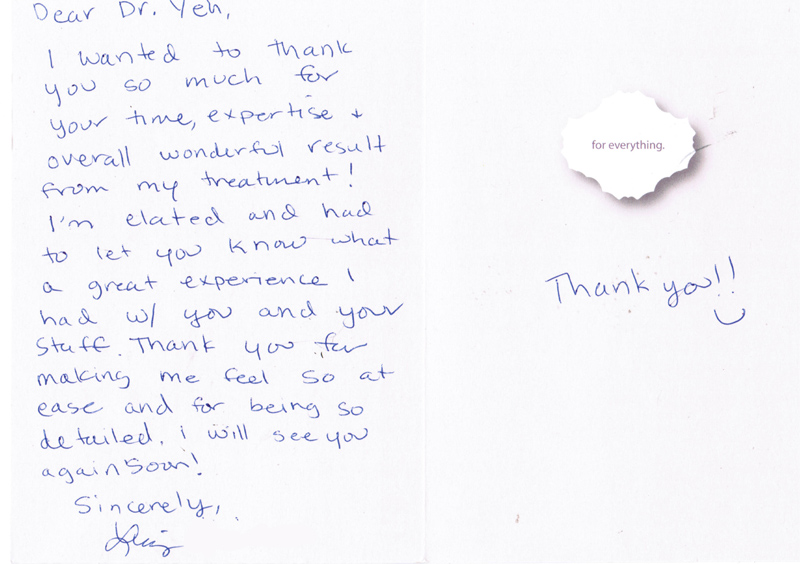 Dear Dr. Yeh,
I wanted to thank
you so much for
your time, expertise +
overall wonderful result
from my treatment!
I'm elated and had
to let you know what
a great experience I
had w/ you and your
staff. Thank you for
making me feel so at
ease and for being so
detailed. i will see you
again soon!
Sincerely,
for everything.
Thank you!!